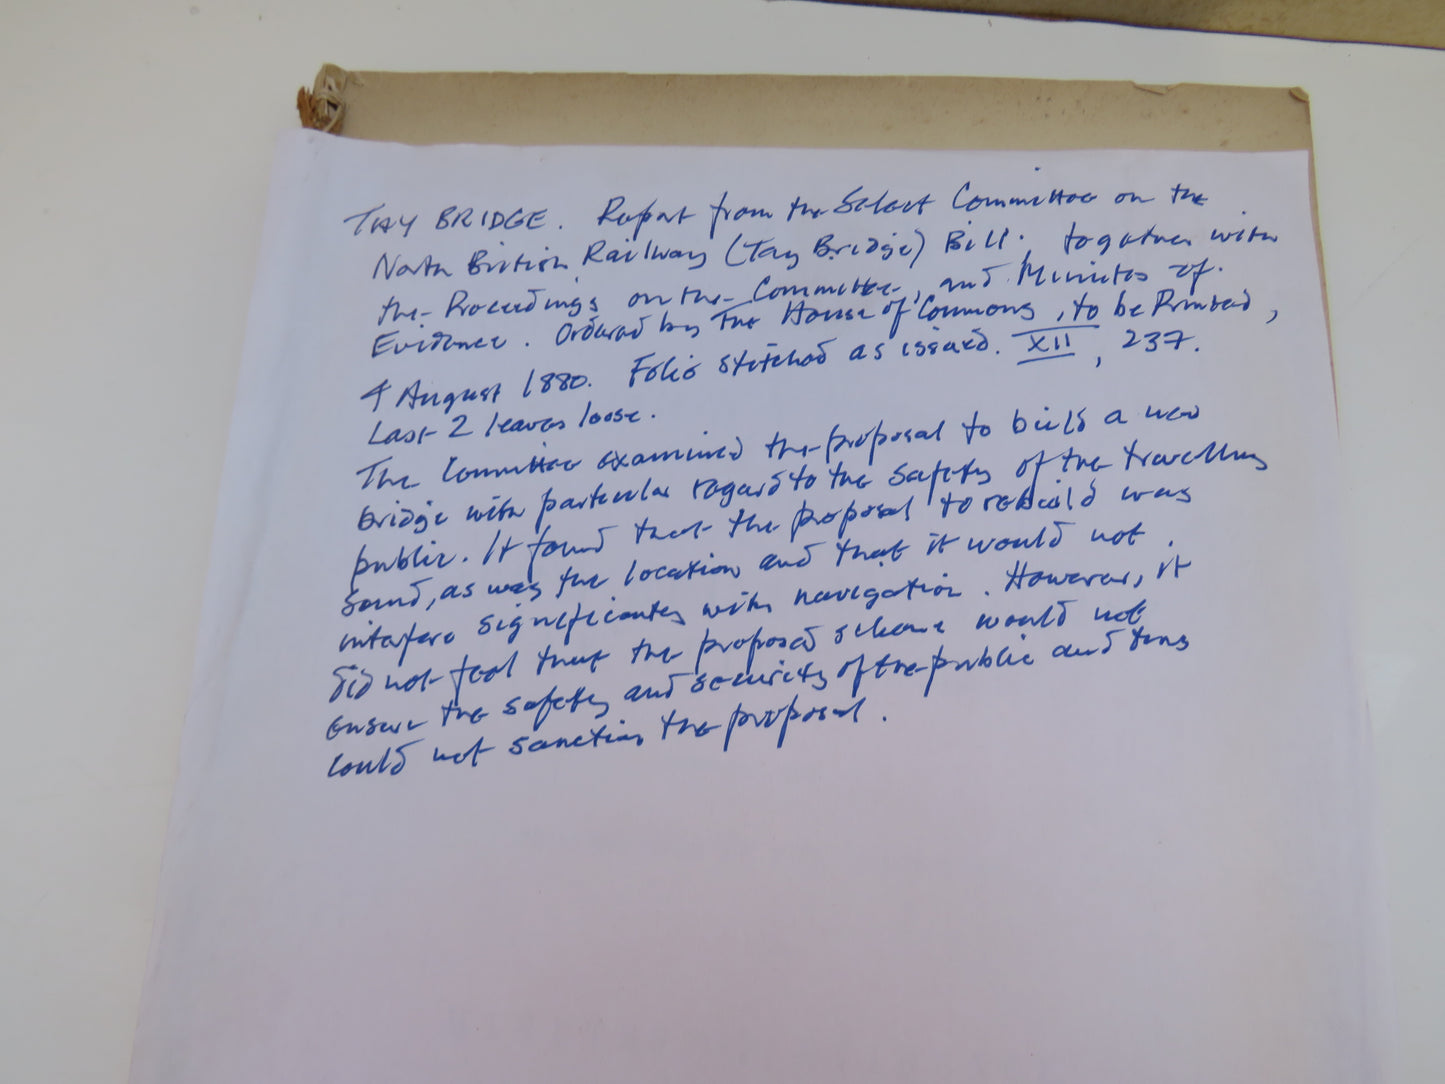 TAY BRIDGE. Report from the Select Committee on the
North British Railway (Tay Bridge) Bill; together with
the Proceedings on the Committee, and Minutes of
Evidence. Ordered by The House of Commons, to be Printed,
4 August 1880. Folio stitched as issued. XII, 237.
Last 2 leaves loose.
The Committee examined the proposal to build a new
bridge with particular regard to the safety of the travelling
public. It found that the proposal to rebuild was
sound, as was the location and that it would not
interfere significantly with navigation. However, it
did not feel that the proposed scheme would not
ensure the safety and security of the public and thus
could not sanction the proposal.